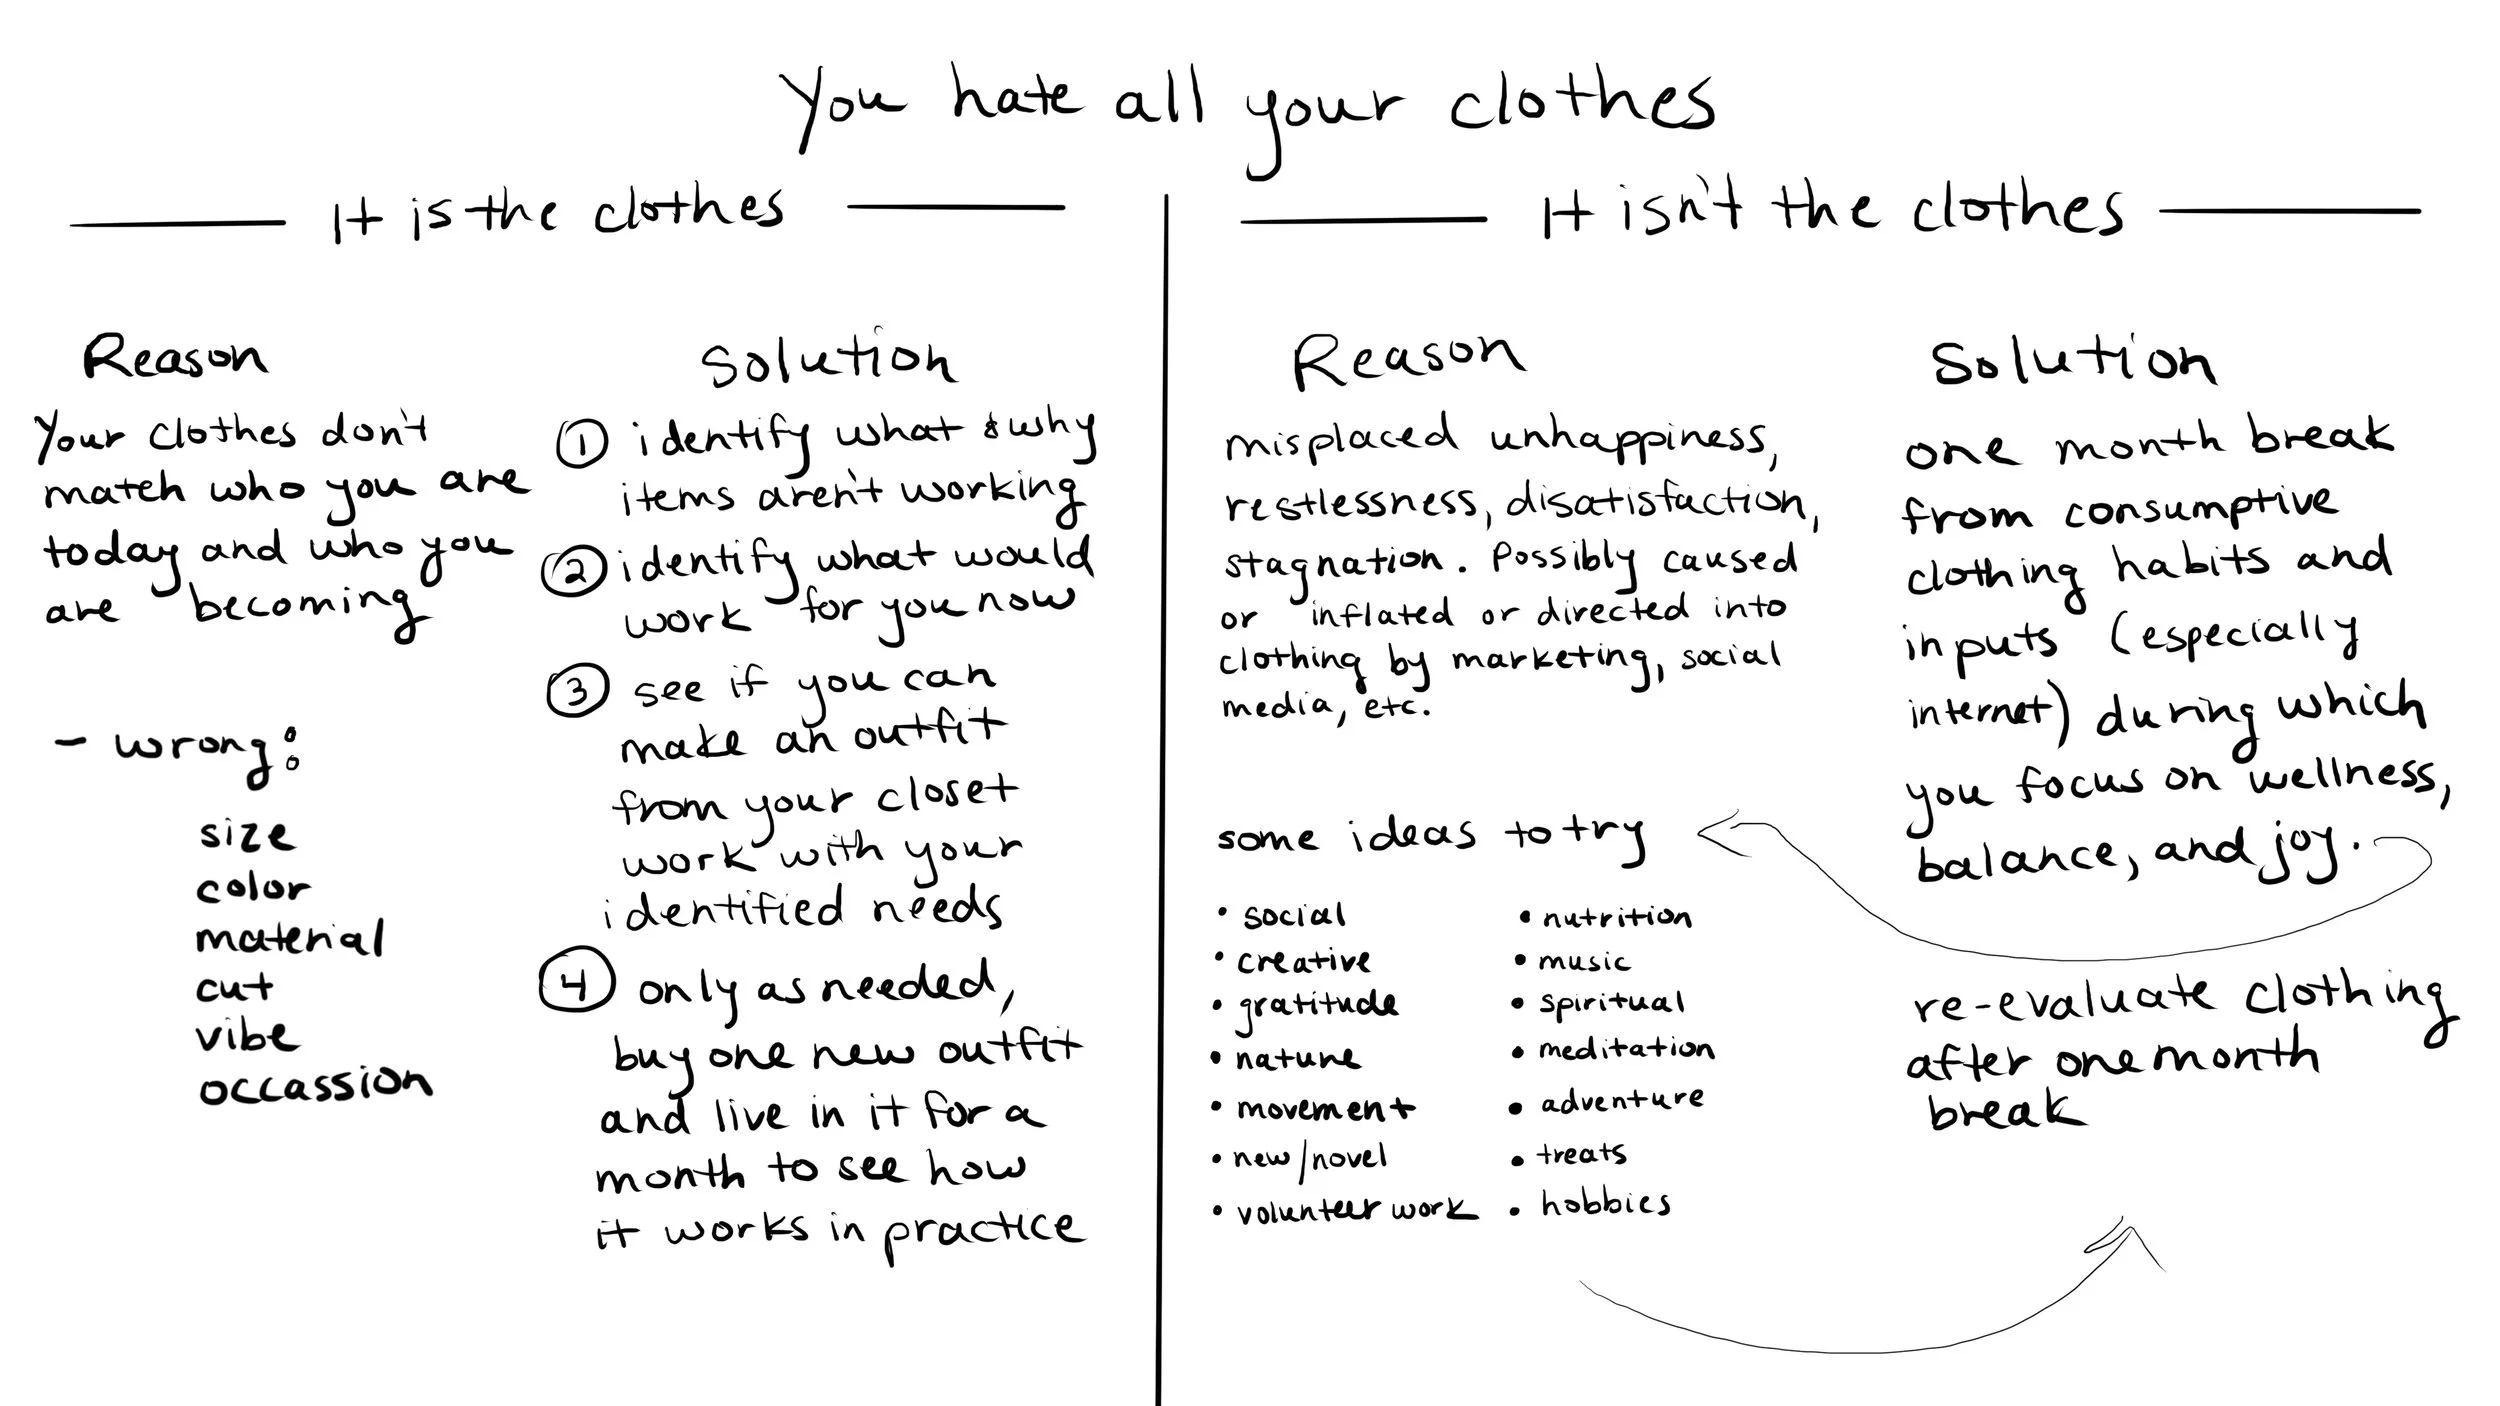 You hate all your clothes
It is the clothes
Reason
Your clothes don't
match who you are
today and who you
are becoming
- wrong:
size
color
material
cut
vibe
occassion
Solution
① identify what & why
items aren't working
② identify what would
work for you now
③ see if you can
make an outfit
from your closet
work with your
identified needs
④ only as needed,
buy one new outfit
and live in it for a
month to see how
it works in practice
It isn't the clothes
Reason
misplaced unhappiness,
restlessness, disatisfaction,
stagnation. Possibly caused
or inflated or directed into
clothing by marketing, social
media, etc.
some ideas to try
• social
• creative
• gratitude
• nature
• movement
• new/novel
• volunteer work
• nutrition
• music
• spiritual
• meditation
• adventure
• treats
• hobbies
Solution
one month break
from consumptive
clothing habits and
inputs (especially
internet) during which
you focus on wellness,
balance, and joy.
re-evaluate clothing
after one month
break